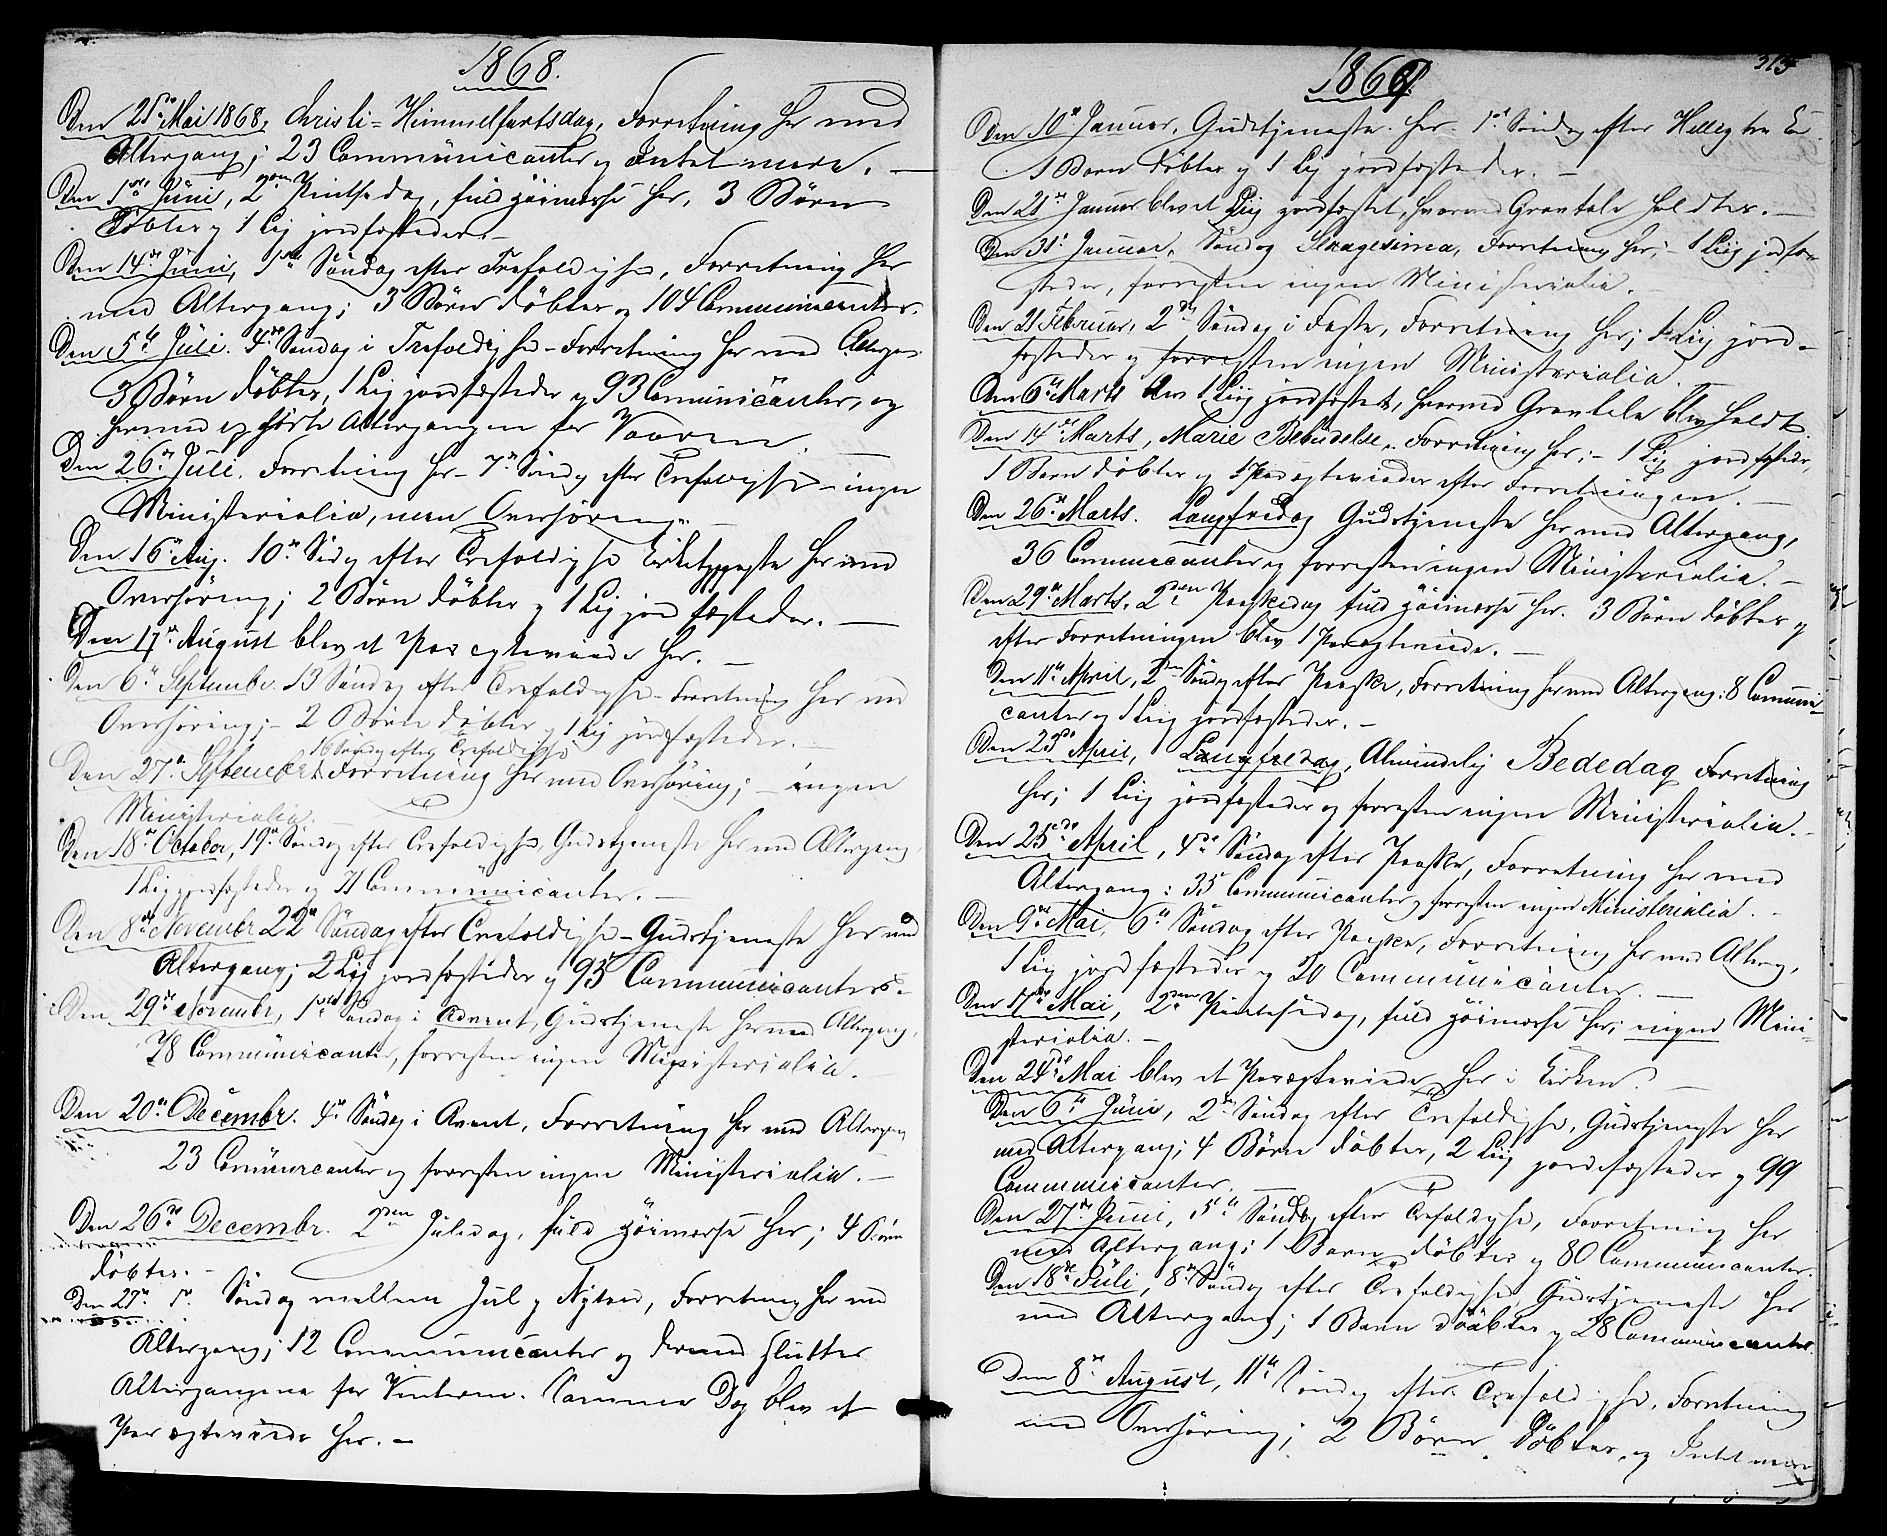 1868.
Den 21de Mai 1868, Christi-Himmelfartsdag, Forretning her med
Altergang; 23 Communicanter og Intet mere. —
Den 1ste Juni, 2den Pintsedag, fuld høimesse her, 3 Børn
døbte og 1 Lig jordfæstedes. —
Den 14de Juni, 1ste Søndag efter Trefoldighed, Forretning her
med Altergang; 3 Børn døbtes og 104 Communicanter.
Den 5te Juli. 4de Søndag i Trefoldighed - Forretning her med Altergang
3 Børn døbtes, 1 Lig jordfæstedes og 93 Comunicanter, og
hermed ophørte Altergangen for Vaaren. —
Den 26de Juli. Forretning her - 7de Søndag efter Trefoldighed - ingen
Ministerialia, men Overhøring. —
Den 16de Aug. 10de Søndag efter Trefoldighed Kirketjeneste her med
Overhøring; 2 Børn døbtes og 1 Lig jordfæstedes. —
Den 17de August blev et Par ægteviede her. —
Den 6te September. 13 Søndag efter Trefoldighed - Forretning her med
Overhøring; - 2 Børn døbtes og 1 Lig jordfæstedes. —
16 Søndag efter Trefoldighed
Den 27de September Forretning her med Overhøring; - ingen
Ministerialia. —
Den 18de October, 19de Søndag efter Trefoldighed, Gudstjeneste her med Altergang
1 Lig jordfæstedes og 71 Communicanter. —
Den 8de Novembr 22de Søndag efter Trefoldighed - Gudstjeneste her med
Altergang; 2 Lig jordfæstedes og 95 Communicanter. —
Den 29de Novembr, 1ste Søndag i Advent, Gudstjeneste her med Altergang,
78 Communicanter, forresten ingen Ministerialia. —
Den 20de Decembr. 4de Søndag i Avent, Forretning her med Altergang
23 Comunicanter og forresten ingen Ministerialia. —
Den 26de Decembr. 2den Juledag, fuld høimesse her; 4 Børn
døbtes. —
Den 27de Søndag mellem Jul og Nytaar, Forretning her med
Altergang; 12 Communicanter og dermed slutter
Altergangene for Vinteren. Samme Dag blev et
Par ægteviede her. —
1869.
315
Den 10de Januar, Gudstjeneste her. 1ste Søndag efter Hellig tre K.
1 Barn døbtes og 1 Lig jordfæstedes. —
Den 21de Januar blev et Liig jordfæstet, hvorved Gravtale holdtes. —
Den 31te Januar, Søndag Sexagesima, Forretning her; - 1 Liig jordfæ-
stedes, forresten ingen Ministerialia. —
Den 21 Februar, 2den Søndag i Faste, Forretning her; 4 Liig jord-
fæstedes og forresten ingen Ministerialia. —
Den 6te Marts blev 1 Liig jordfæstet, hvorved Gravtale blev holdt.
Den 14de Marts, Marie Bebudelse, Forretning her; - 1 Lig jordfæstedes,
1 Barn døbtes og 1 Par ægteviedes efter Forretningen. —
Den 26de Marts. Langfredag Gudstjeneste her med Altergang,
36 Communicanter og forresten ingen Ministerialia. —
Den 29de Marts. 2den Paaskedag fuld høimesse her. 3 Børn døbtes og
efter Forretningen blev 1 Par ægteviede. —
Den 11te April, 2den Søndag efter Paaske, Forretning her med Altergang: 8 Communi-
canter og 1 Liig jordfæstedes. —
Den 23de April, Langfredag, Almindelig Bededag Forretning
her; 1 Liig jordfæstedes og forresten ingen Ministerialia. —
Den 25de April, 4de Søndag efter Paaske, Forretning her med
Altergang: 35 Communicanter og forresten ingen Ministerialia. —
Den 9de Mai, 6te Søndag efter Paaske, Forretning her med Alterg,
1 Lig jordfæstedes og 20 Communicanter. —
Den 17de Mai, 2den Pintsedag, fuld høimesse her; ingen Mini-
sterialia. —
Den 24de Mai blev et Par ægteviede her i Kirken. —
Den 6te Juni, 2den Søndag efter Trefoldighed, Gudstjeneste her
med Altergang; 4 Børn døbtes, 2 Liig jordfæstedes og 99
Communicanter. —
Den 27de Juni, 5te Søndag efter Trefoldighed, Forretning her
med Altergang; 1 Barn døbtes og 80 Communicanter.
Den 18de Juli, 8de Søndag efter Trefoldighed Gudstjeneste her
med Altergang; 1 Barn døbtes og 28 Communicanter.
Den 8de August, 11te Søndag efter Trefoldighed, Forretning
med Overhøring; 2 Børn døbtes, og Intet mere